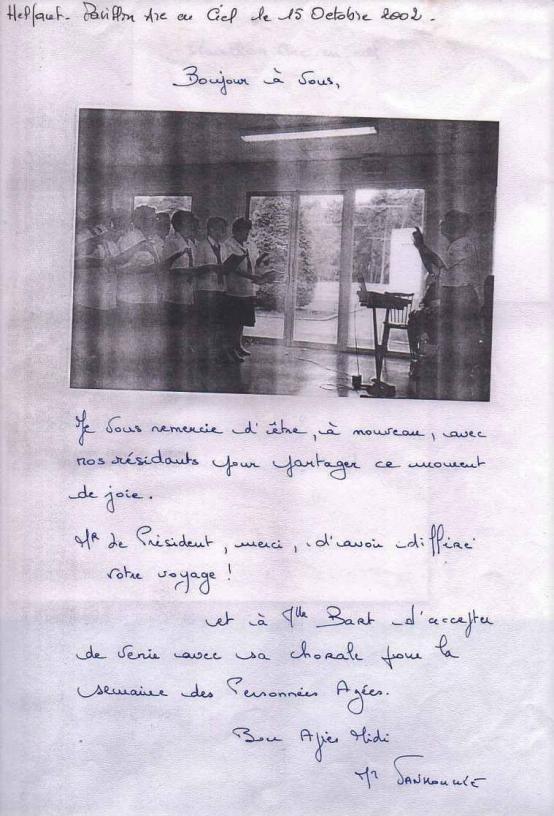 Helfaut. Pavillon Arc en Ciel le 15 Octobre 2002.
Bonjour à Vous,
Je Vous remercie d'être, à nouveau, avec
nos résidants pour partager ce moment
de joie.
Mr Le Président, merci, d'avoir différé
votre voyage !
et à Mlle Bart d'accepter
de venir avec sa chorale pour la
semaine des Personnes Agées.
Bon Après Midi
Mr